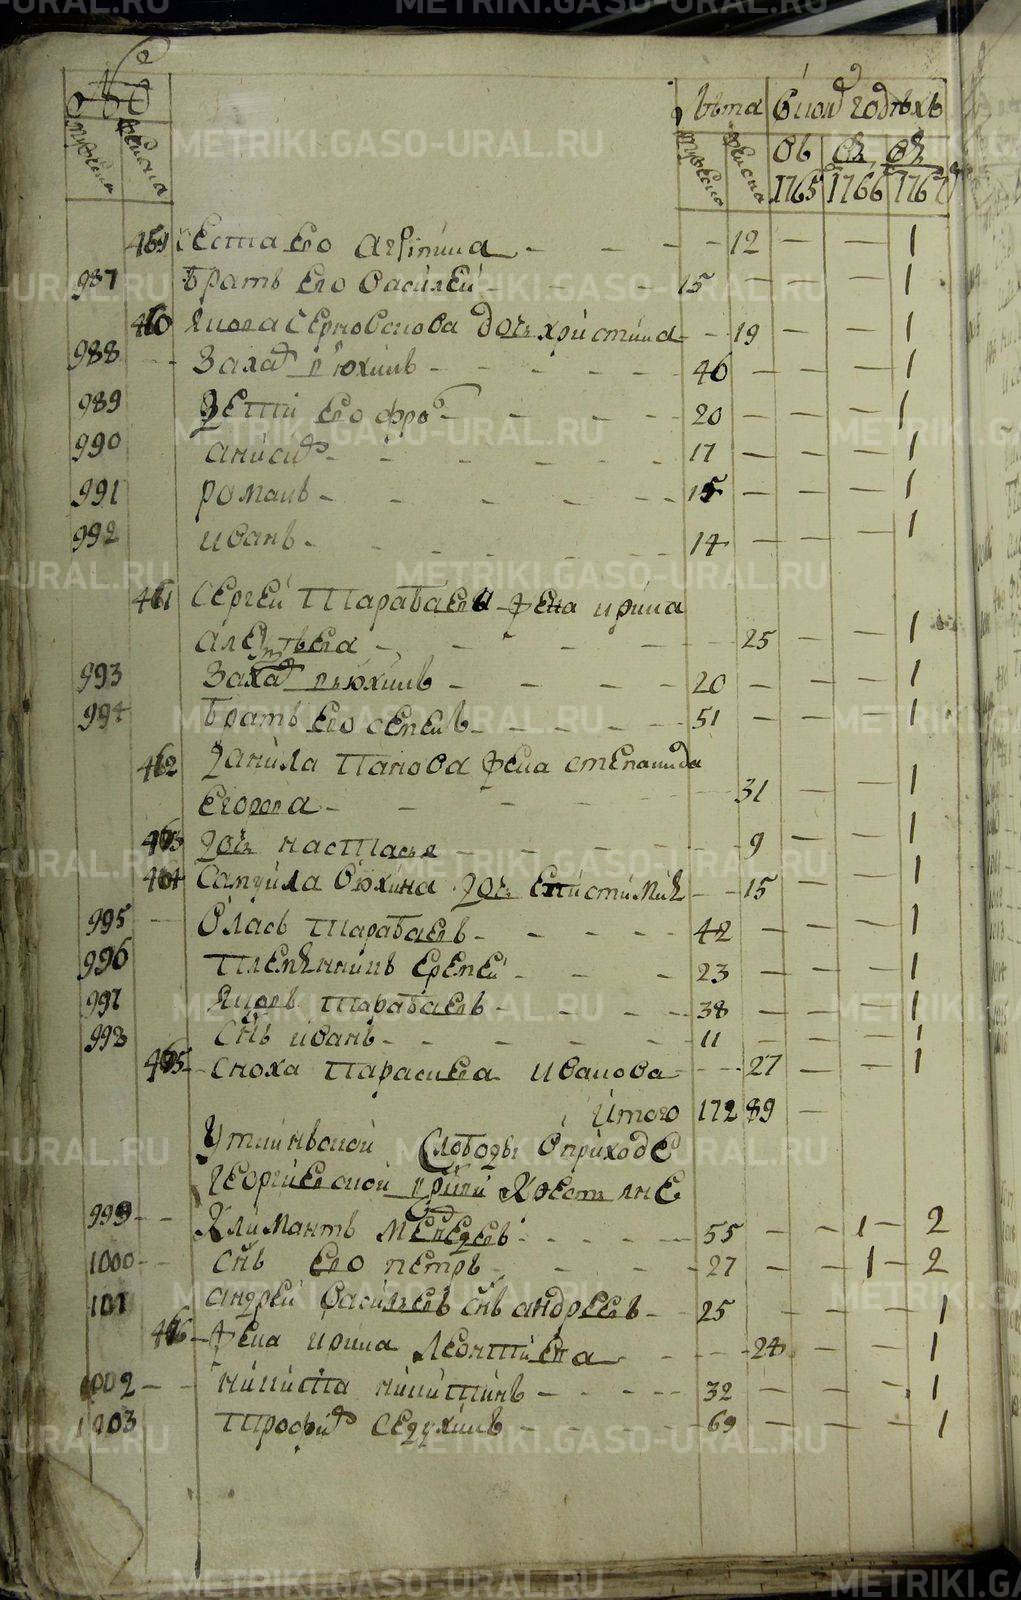 мужеска женска лѣта в коих годѣхъ
мужеска женска в 1765 1766 1767
459 сестра ево агѣпина — — — 12 — — 1
987 братъ ево василей — 15 — — 1
460 якова сермованова дочь христина — 19 — — 1
988 — захар вьюхинъ — — — — — 46 — — 1
989 дети ево фрол — — — — 20 — — 1
990 анисим — — — — — 17 — — 1
991 романъ — — — — — 15 — — 1
992 иванъ — — — — — 14 — — 1
461 сергей тарабаева жена ирина
алексѣева — — — — 25 — — 1
993 захар вьюхинъ — — — — 20 — — 1
994 братъ ево семенъ — — — — 51 — — 1
462 данила панова жена степанида
егорова — — — — 31 — — 1
463 дочь настасья — — — — 9 — — 1
464 самуила вюхина дочь епистимия — — 15 — — 1
995 — власъ тарабаевъ — — — — — 42 — — 1
996 племянникъ еремей — — — 23 — — 1
997 яковъ тарабаевъ — — — — 38 — — 1
998 снъ иванъ — — — — — 11 — — 1
465 — сноха парасковья иванова — — 27 — — 1
итого 172 89 —
уткинской слободы в приходе
георгиевской цркви крестьяне
999 — — климантъ медведевъ — — — — 55 — — 1 — 2
1000 — — снъ ево петръ — — — — 27 — — 1 — 2
101 андрей васильевъ снъ андреевъ — 25 — — — 1
466 — жена ирина леонтиева — — — 24 — — 1
1002 — — никита никитинъ — — — — 32 — — — 1
1003 трофим седухинъ — — — — 69 — — — 1
METRIKI.GASO-URAL.RU